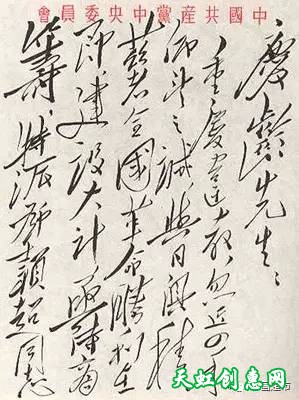 中國共産黨中央委員會
慶齡先生：
重慶違教，忽近四年
仰望之誠，與日俱積
茲者全國革命勝利在
即，建設大計，亟待商
籌，特派鄧穎超同志
天虹创意网